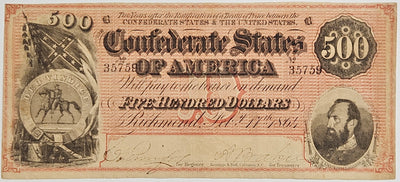 500
Two Years after the Ratification of a Treaty of Peace between the
CONFEDERATE STATES & THE UNITED STATES.
Confederate States
No 35759 No 35759
OF AMERICA
500
Will pay to the bearer on demand
FIVE HUNDRED DOLLARS
Richmond Feb.y 17th 1864
for Register
for Treasurer